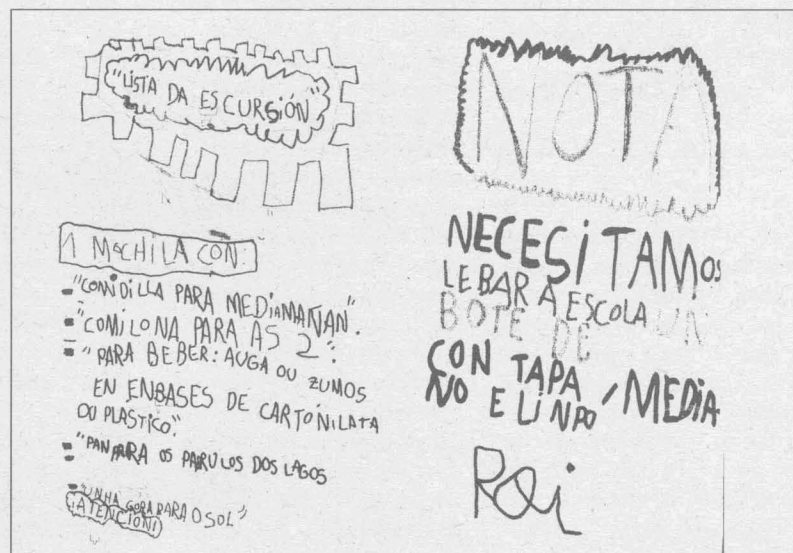 "LISTA DA ESCURSIÓN"
1 MOCHILA CON:
- "COMIDILLA PARA MEDIAMAÑAN".
- "COMILONA PARA AS 2".
- "PARA BEBER: AUGA OU ZUMOS
EN ENBASES DE CARTÓN, LATA
OU PLASTICO".
- "PAN PARA OS PARULOS DOS LAGOS
- "UNHA GORA PARA O SOL"
¡ATENCIÓN!
NOTA
NECESITAMOS
LEBAR A ESCOLA UN
BOTE DE
CON TAPA / MEDIA
NO E LINPO
Roi